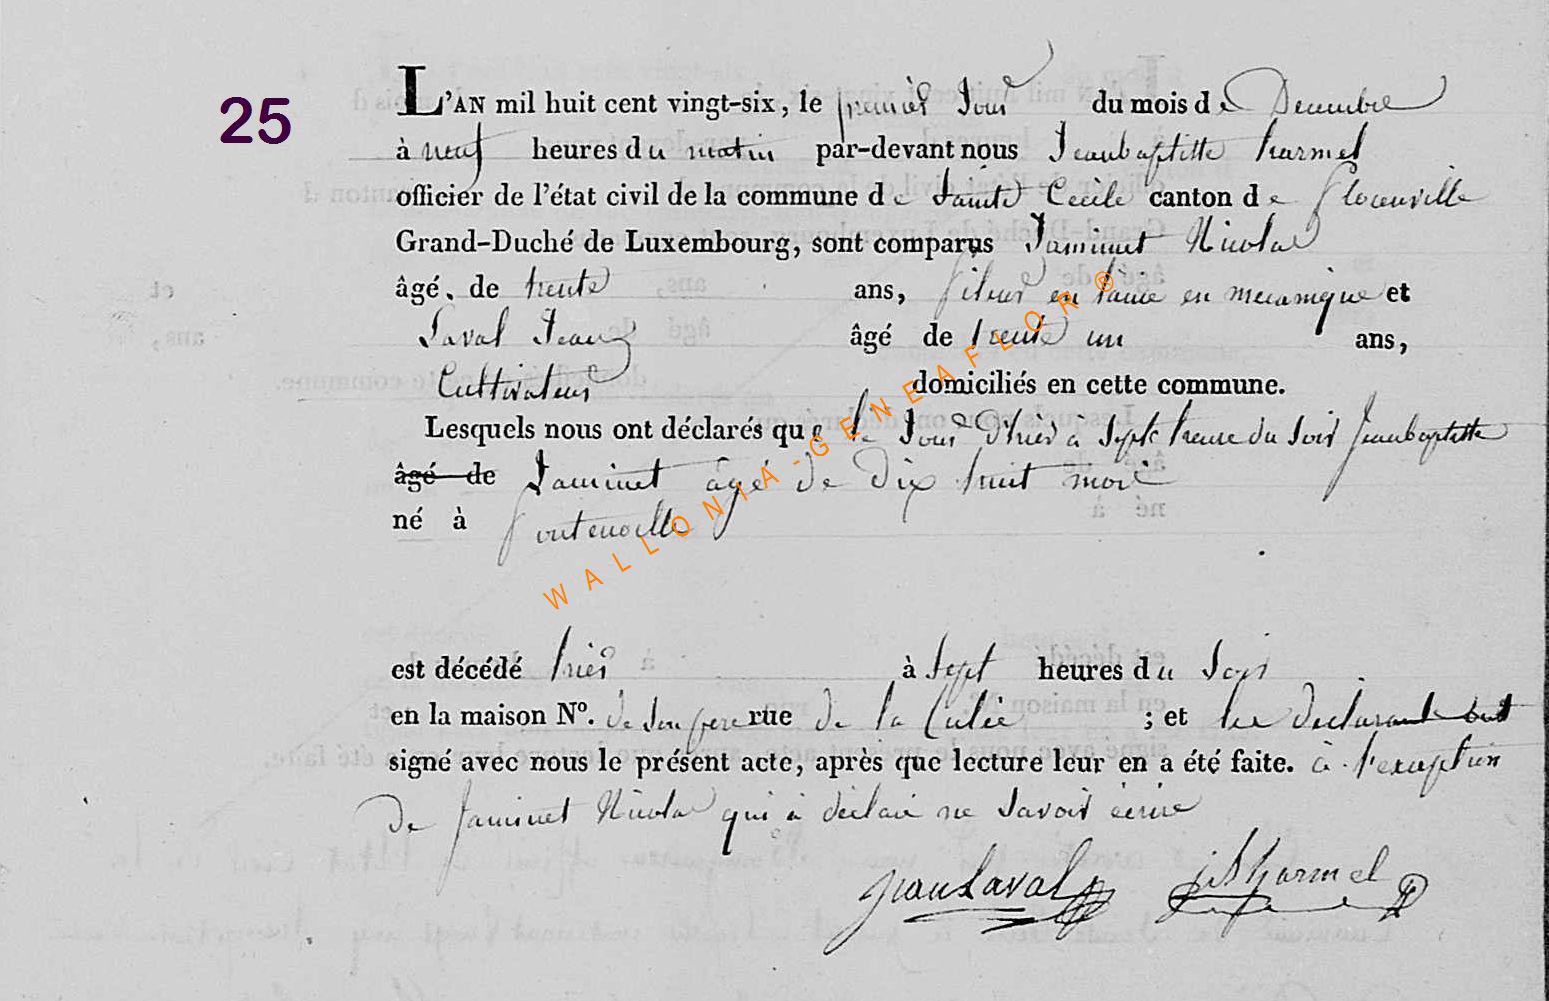 25
L'AN mil huit cent vingt-six, le premier Jour du mois de Decembre
à neuf heures du matin par-devant nous Jeanbaptiste harmel
officier de l'état civil de la commune de Sainte Cecile canton de Florenville
Grand-Duché de Luxembourg, sont comparus Jaminet Nicolas
âgé de trente ans, fileur en laine en mecanique et
Laval Jean âgé de trente un ans,
Cultivateur domiciliés en cette commune.
Lesquels nous ont déclarés que le Jour d'hier à Sept heure du Soir Jeanbaptiste
âgé de Jaminet âgé de dix huit moi
né à fontenoille
est décédé hier à Sept heures du Soir
en la maison Nº. de Son pere rue de la Culée ; et les declarant ont
signé avec nous le présent acte, après que lecture leur en a été faite. à l'exception
de Jaminet Nicolas qui à déclaré ne Savoir écrire
Jean Laval jbharmel
WALLONIA-GENEAFLOR®